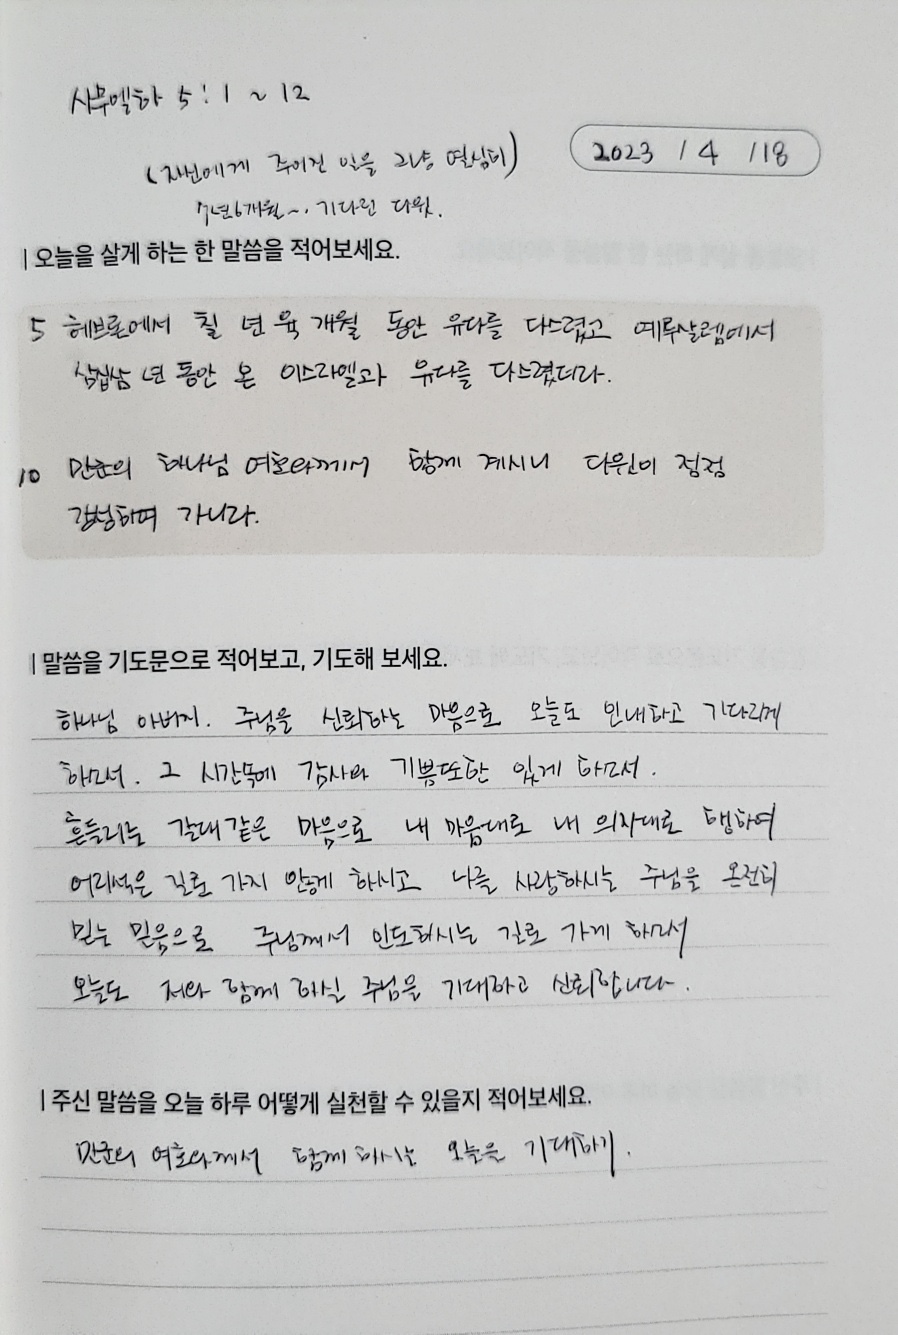 사무엘하 5:1~12
(자신에게 주어진 일을 그냥 열심히)
2023 / 4 / 18
7년6개월~.. 기다린 다윗.
| 오늘을 살게 하는 한 말씀을 적어보세요.
5 헤브론에서 칠 년 육 개월 동안 유다를 다스렸고 예루살렘에서
삼십삼 년 동안 온 이스라엘과 유다를 다스렸더라.
10 만군의 하나님 여호와께서 함께 계시니 다윗이 점점
강성하여 가니라.
| 말씀을 기도문으로 적어보고, 기도해 보세요.
하나님 아버지. 주님을 신뢰하는 마음으로 오늘도 인내하고 기다리게
하소서. 그 시간속에 감사와 기쁨또한 있게 하소서.
흔들리는 갈대같은 마음으로 내 마음대로 내 의지대로 행하여
어리석은 길로 가지 않게 하시고 나를 사랑하시는 주님을 온전히
믿는 믿음으로 주님께서 인도하시는 길로 가게 하소서
오늘도 저와 함께 하실 주님을 기대하고 신뢰합니다.
| 주신 말씀을 오늘 하루 어떻게 실천할 수 있을지 적어보세요.
만군의 여호와께서 함께 하시는 오늘을 기대하기.